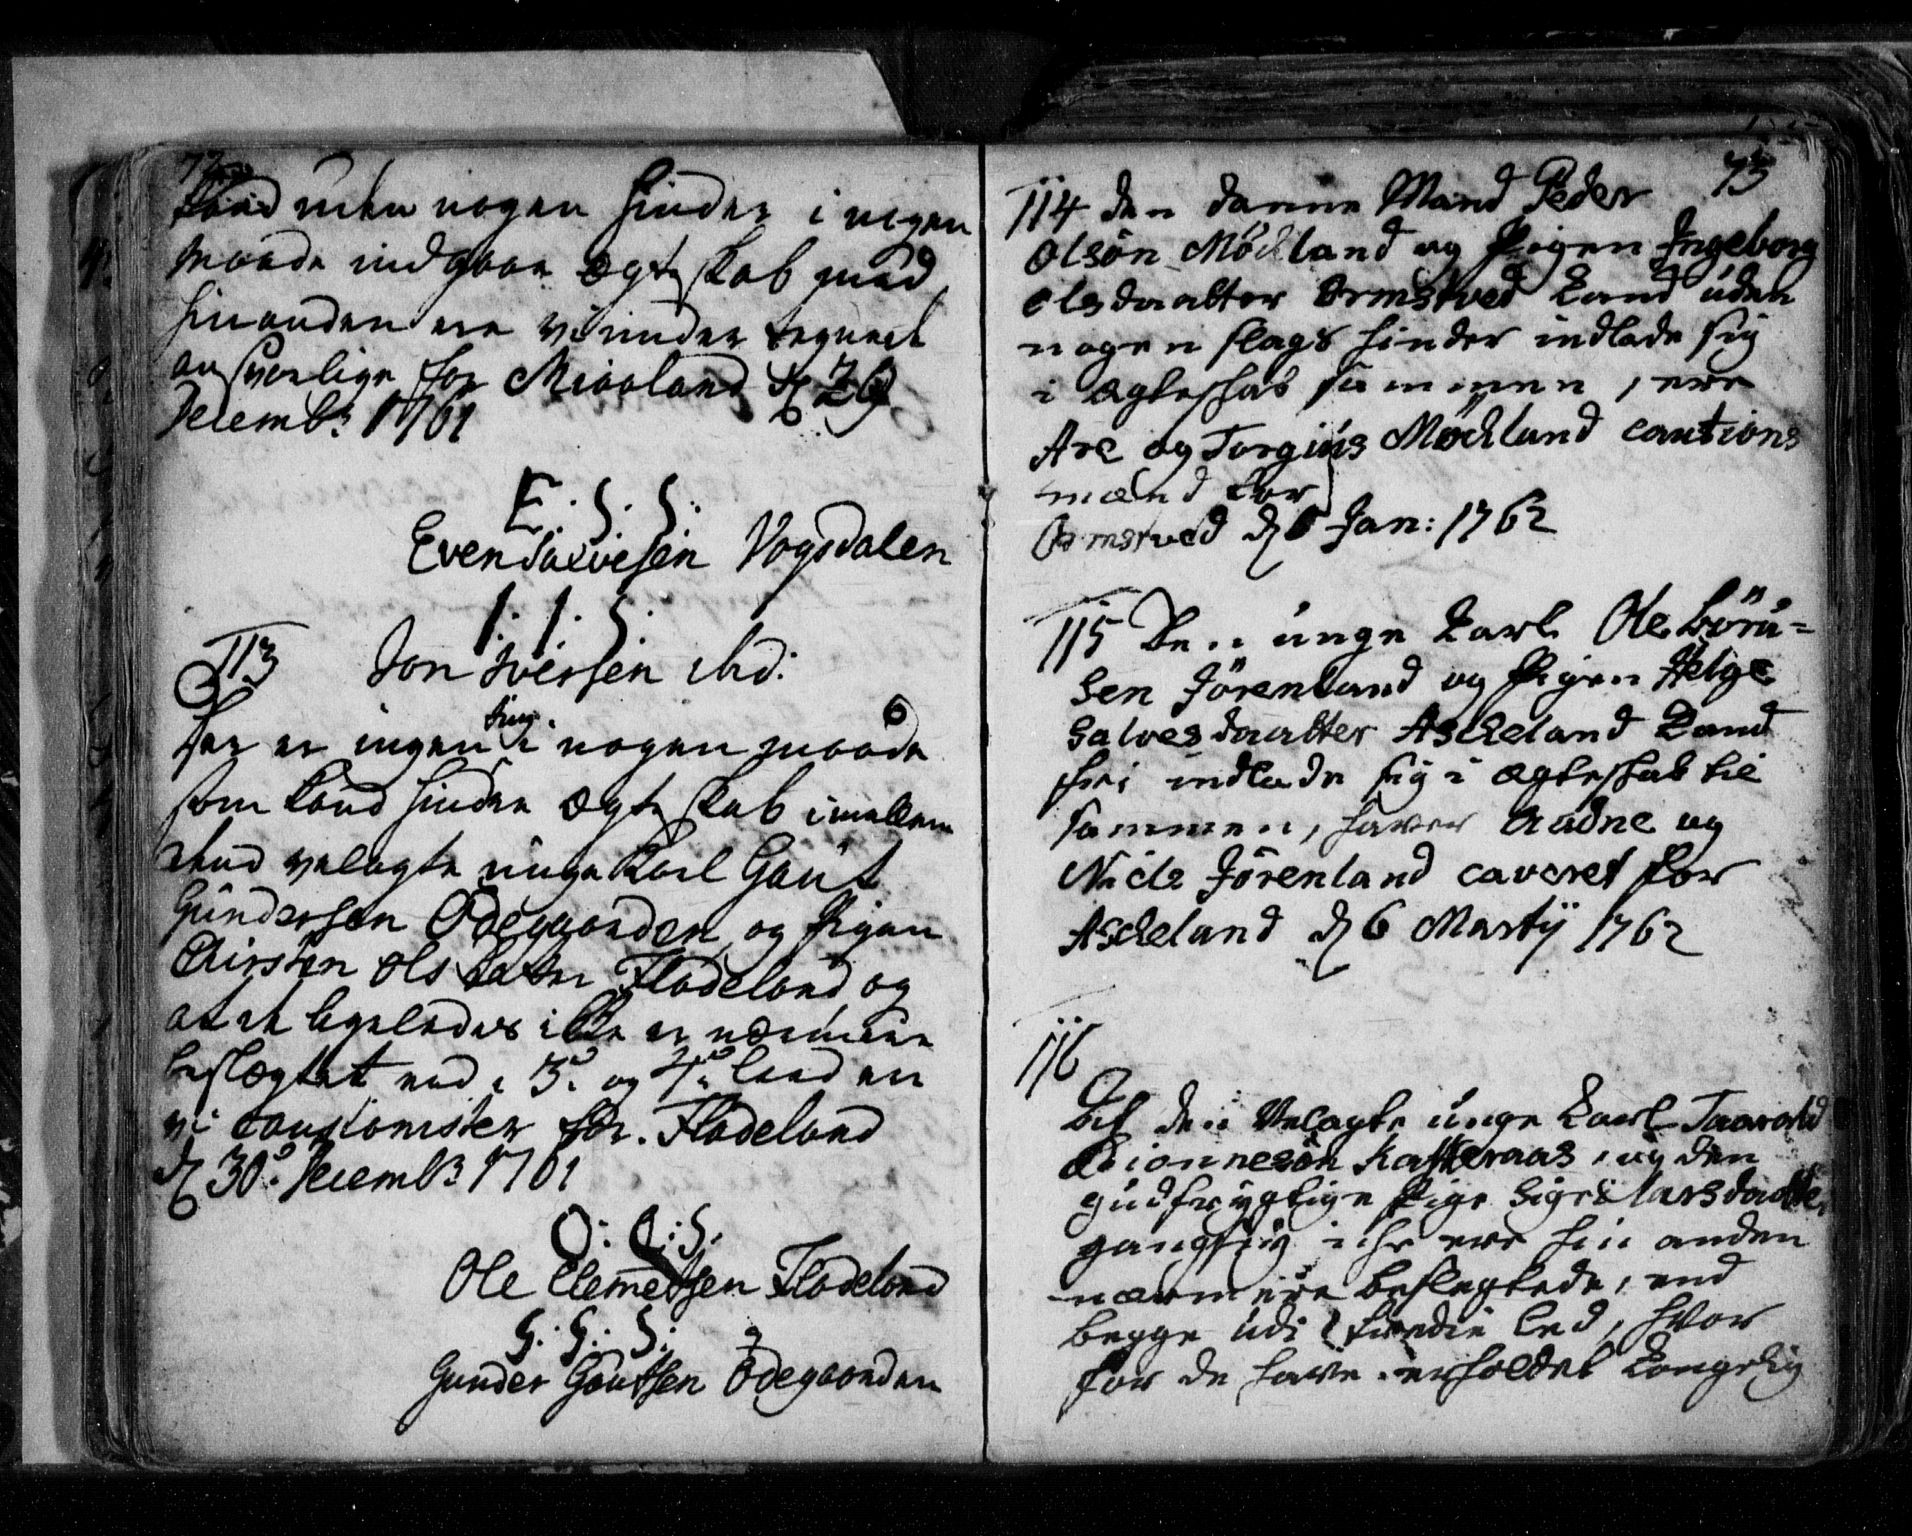 72
kand uden nogen hinder i nogen
maade indgaae Ægteskab med
hinanden ere vi under tegnede
ansvarlige for Miaaland d. 29
Decemb: 1761
E: S: S:
Even Salvesen Vogsdalen
I: I: S:
Jon Iversen ibid:
113
Der er ingen ting i nogen maade
som kand hindre Ægteskab imellem
den velagte unge Karl Gaut
Gundersen Ødegaarden og Pigen
Chirsten Olsdatter Fladeland og
at de ligeledes ikke er nærmere
beslægtet end i 3. og 4. Leed ere
vi Cautionister for. Fladeland
d. 30. Decemb 1761
O: C: S.
Ole Clemetsen Fladeland
G: G: S:
Gunder Gautsen Ødegaarden
73
114 den danne Mand Peder
Olsøn Mødland og Pigen Ingeborg
Olsdaatter Ormstved kand uden
nogen slags hinder indlade sig
i Ægteskab sammen, ere
Are og Torgius Mødland cautions
mænd for
Ormstved d. 6 Jan: 1762
115 den unge Karl Ole Børu-
sen Jørenland og Pigen Helge
Salvesdaatter Ascheland kand
frie indlade sig i Ægteskab til
sammen, haver Aadne og
Niels Jørenland caveret for
Ascheland d. 6 Martij 1762
116
At den Velagte unge Karl Taarald
Biønnesøn Kafferaas, og den
gudfrygtige Pige Sigri Larsdaatter
ganghiig iche ere hin anden
nærmere beslegtede, end
begge udi tredie Led, hvor
for de have erholdet Kongelig